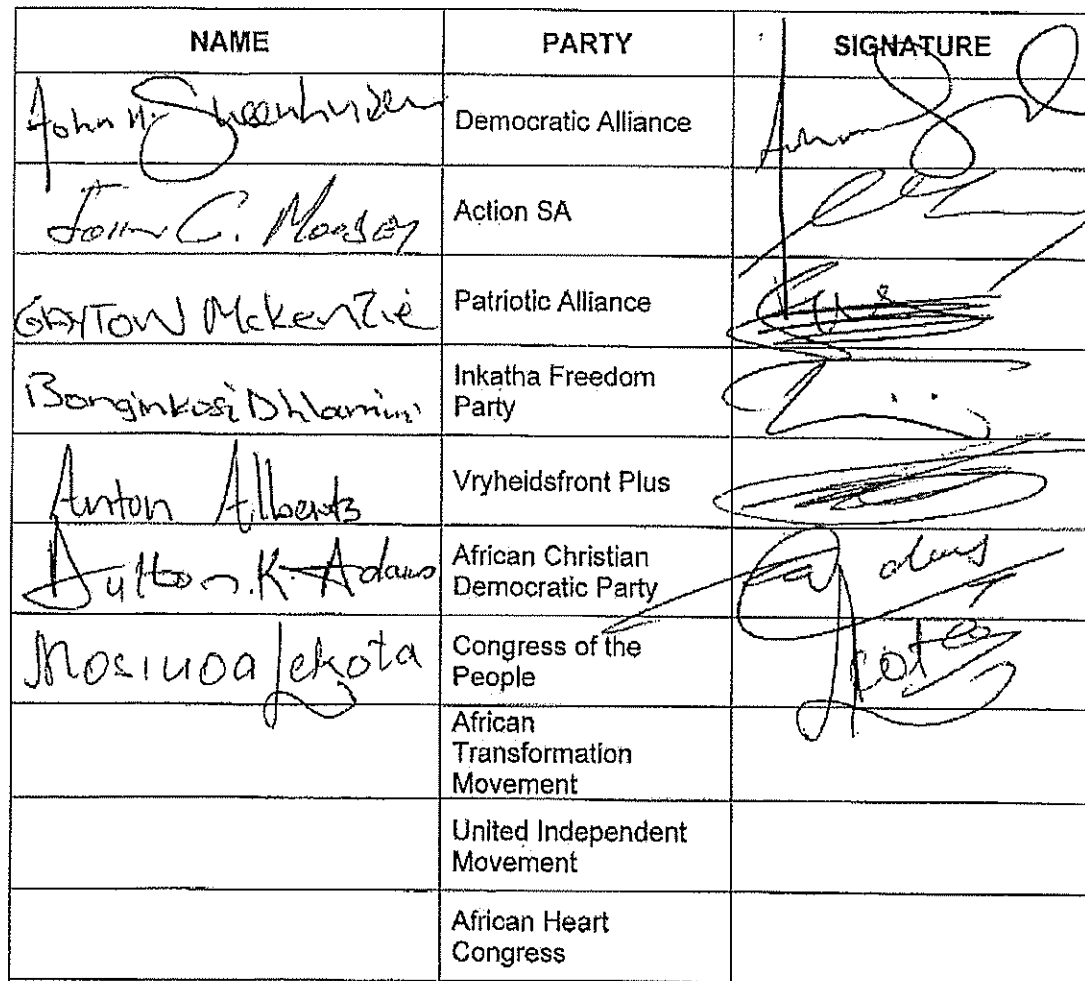 NAME PARTY SIGNATURE
John H. Steenhuisen Democratic Alliance
John C. Moodey Action SA
GAYTON McKenzie Patriotic Alliance
Bonginkosi Dhlamini Inkatha Freedom
Party
Anton Alberts Vryheidsfront Plus
Dulton. K. Adams African Christian
Democratic Party
Adams
Mosiuoa Lekota Congress of the
People
Lekota
African
Transformation
Movement
United Independent
Movement
African Heart
Congress